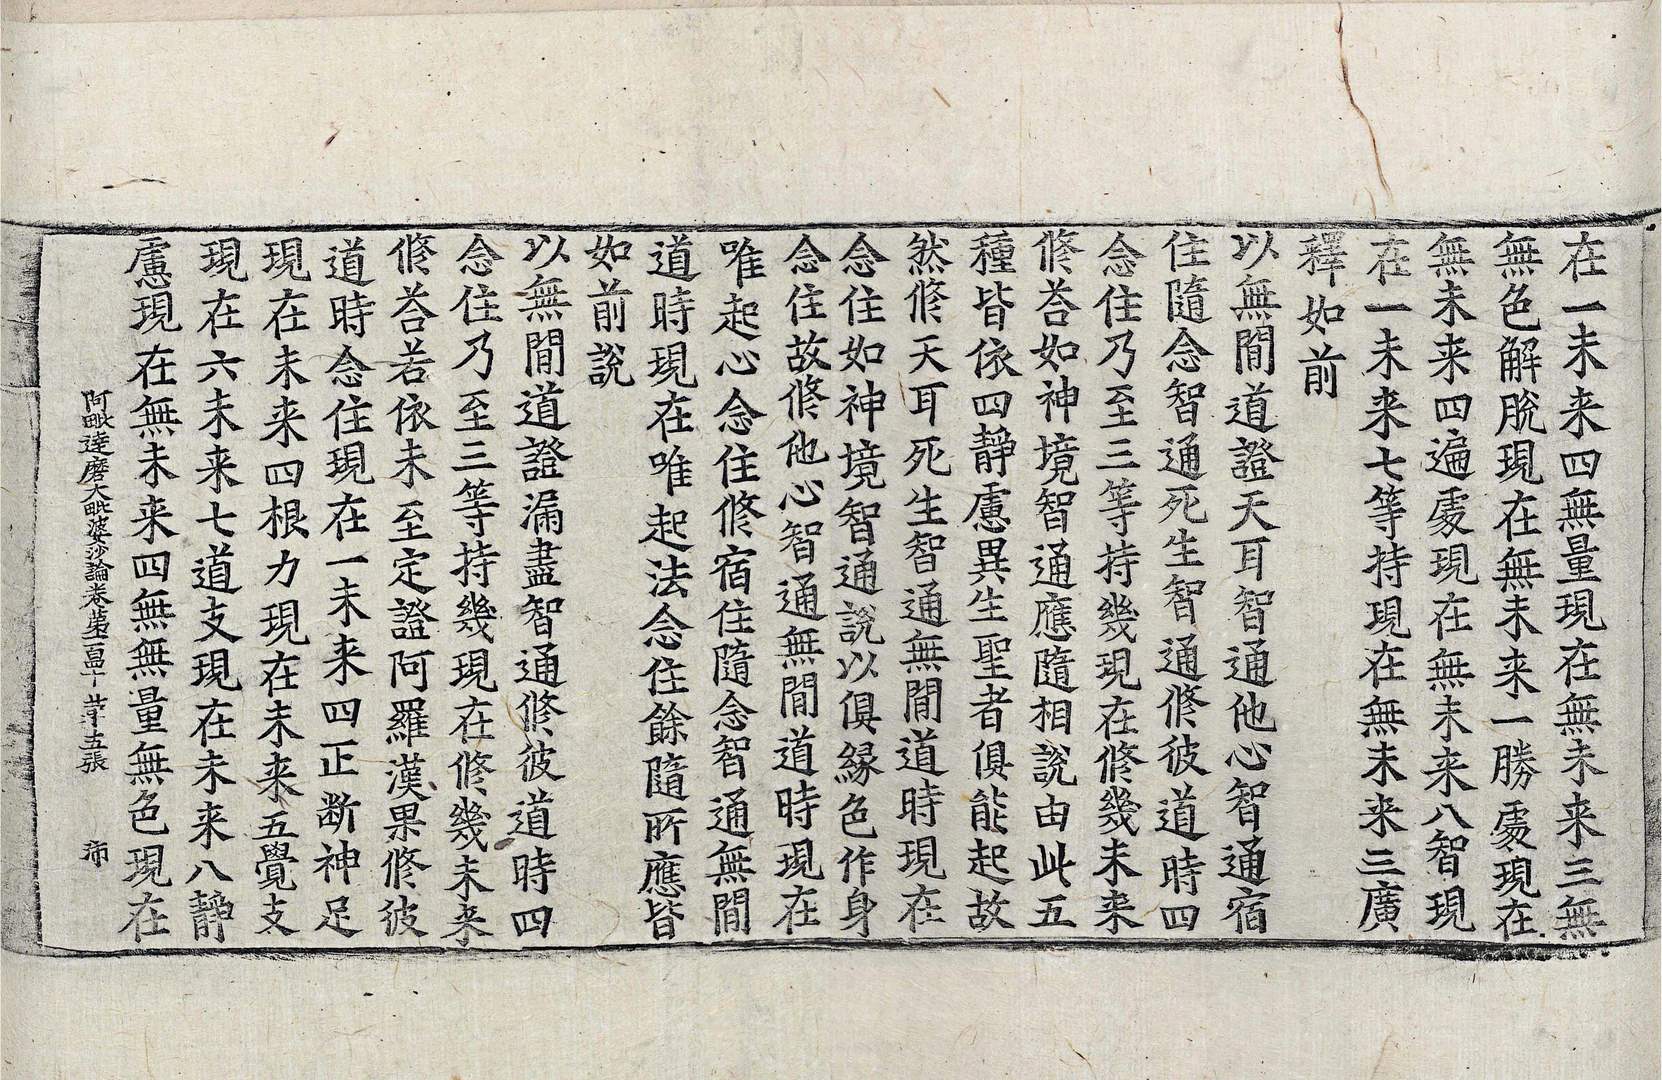 在一未来四無量現在無未来三無
無色解脫現在無未来一勝處現在
無未来四遍處現在無未来八智現
在一未来七等持現在無未来三廣
釋如前
以無間道證天耳智通他心智通宿
住隨念智通死生智通修彼道時四
念住乃至三等持幾現在修幾未来
修荅如神境智通應隨相說由此五
種皆依四靜慮異生聖者俱能起故
然修天耳死生智通無間道時現在
念住如神境智通說以俱緣色作身
念住故修他心智通無間道時現在
唯起心念住修宿住隨念智通無間
道時現在唯起法念住餘隨所應皆
如前說
以無間道證漏盡智通修彼道時四
念住乃至三等持幾現在修幾未来
修荅若依未至定證阿羅漢果修彼
道時念住現在一未来四正断神足
現在未来四根力現在未来五覺支
現在六未来七道支現在未来八靜
慮現在無未来四無無量無色現在
阿毗達磨大毗婆沙論卷第一百四十 第十五張 沛